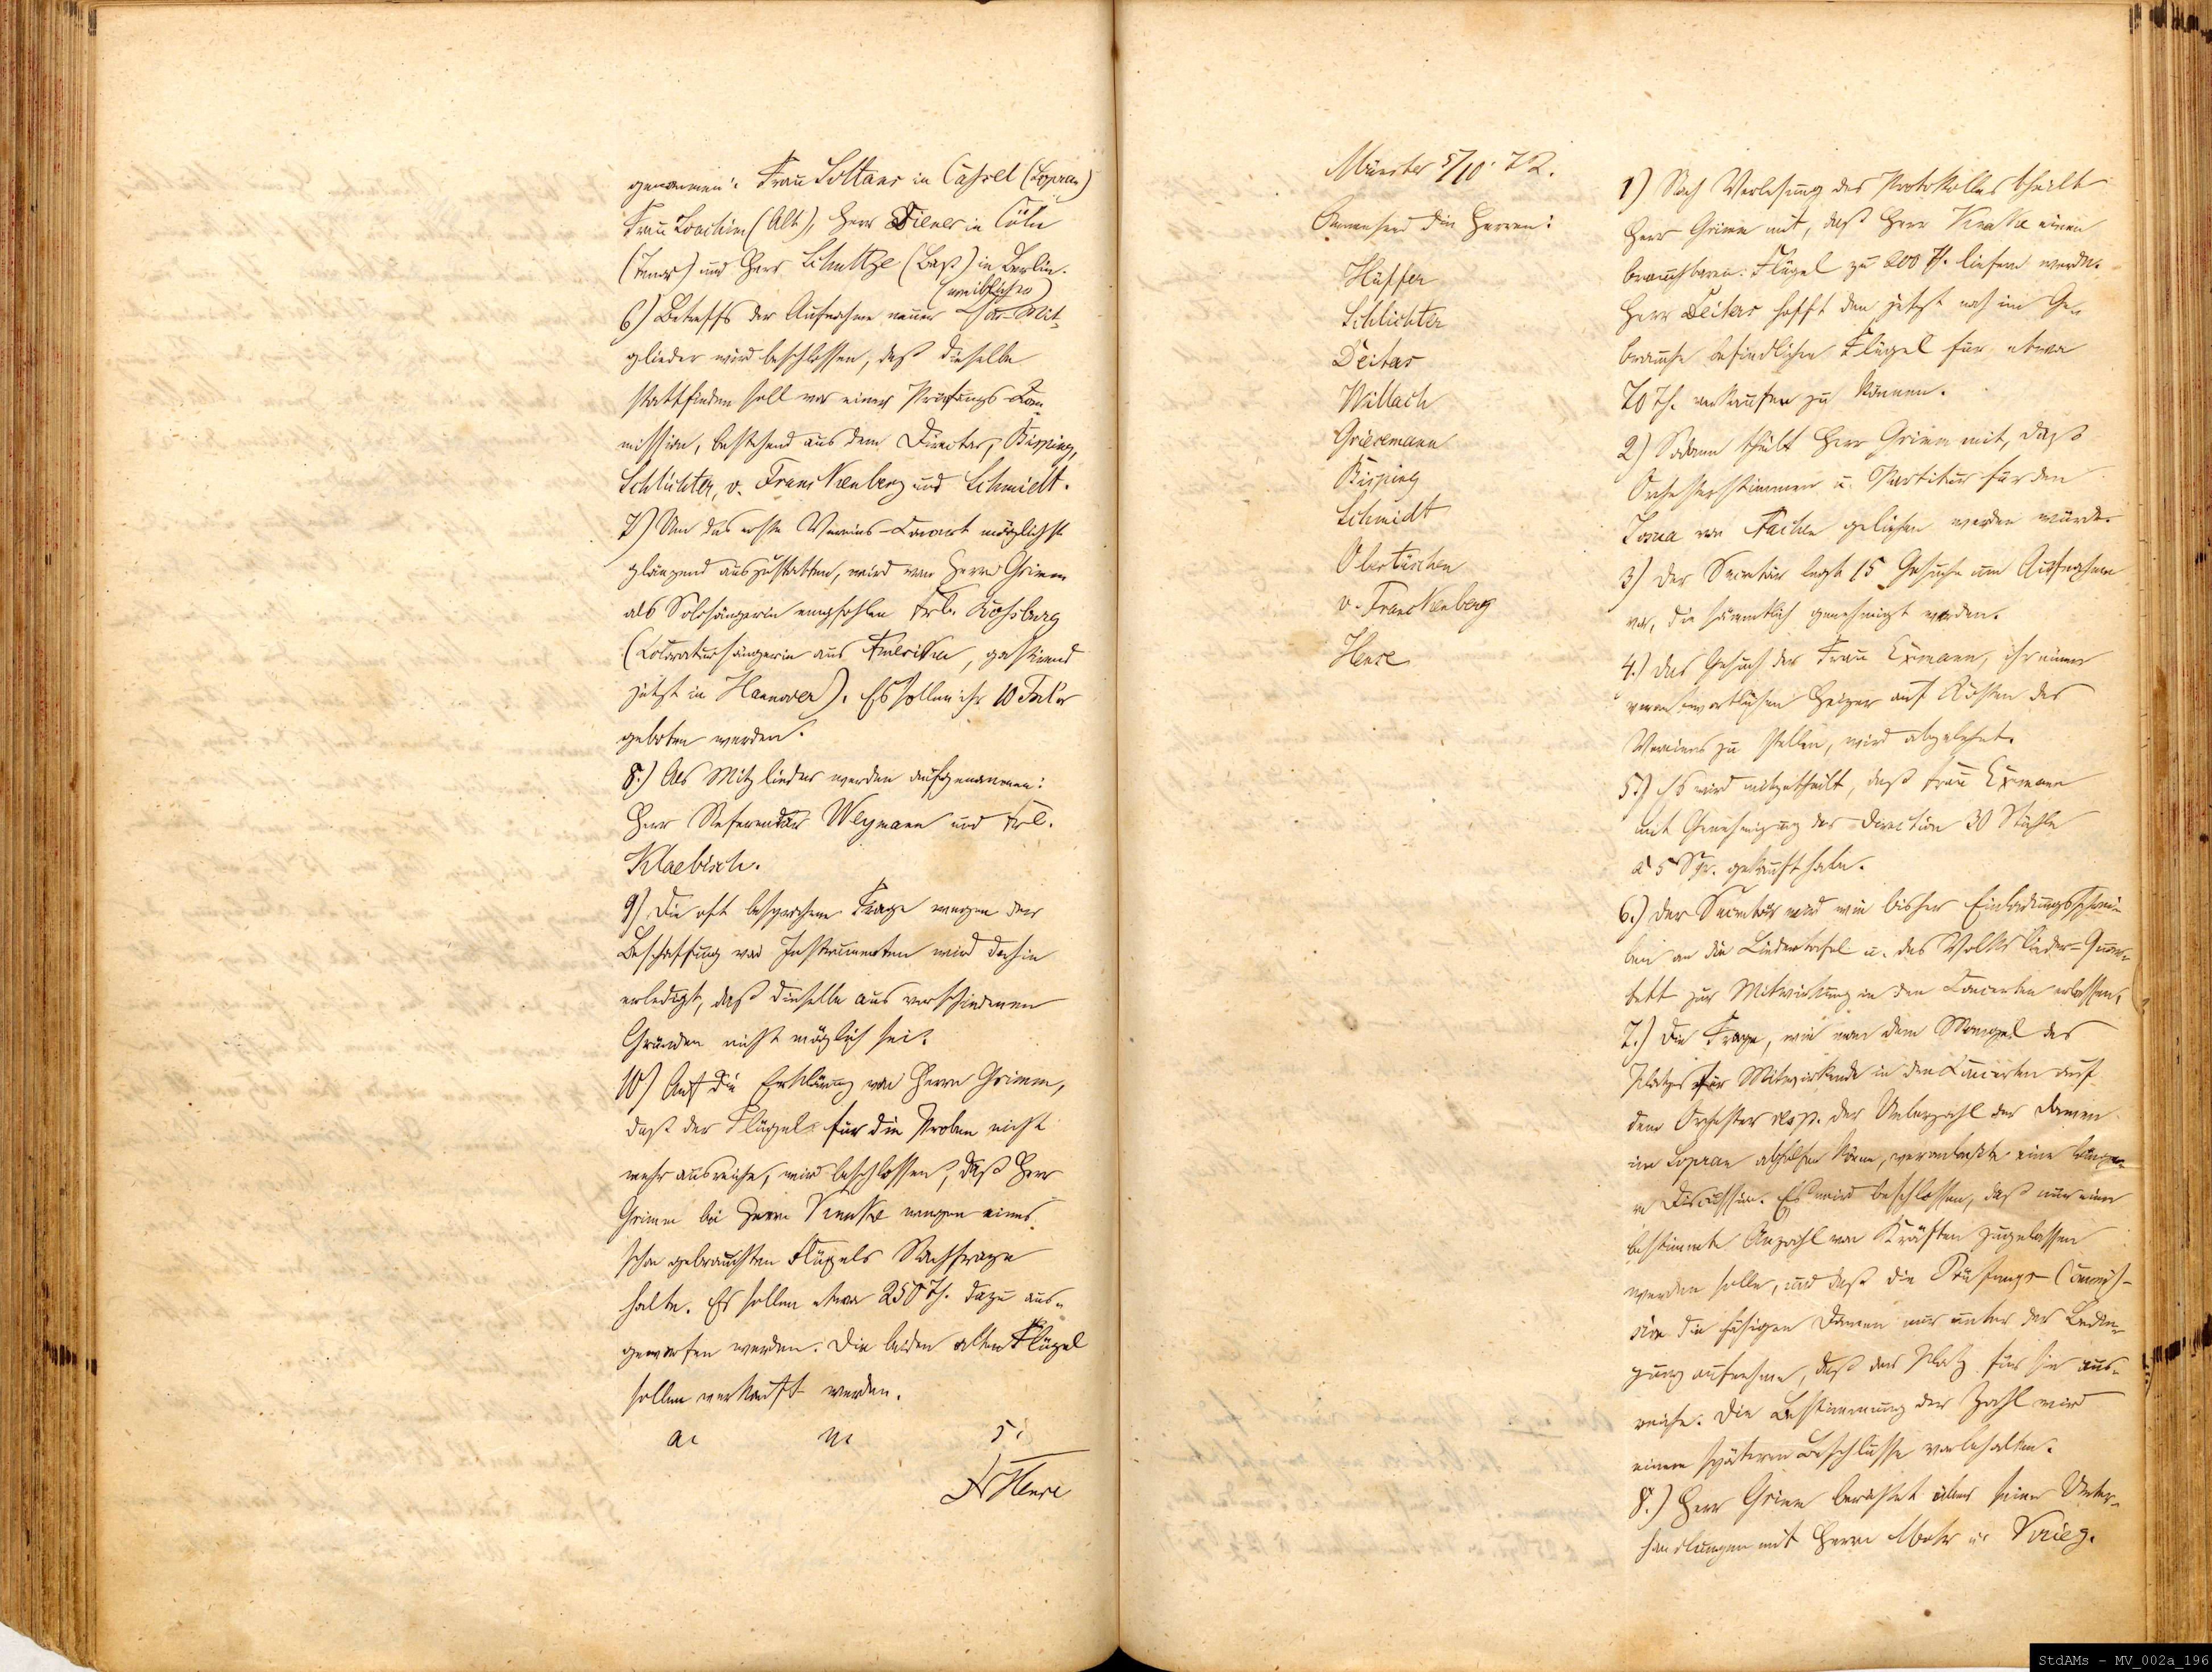 genommen: Frau Soltans in Cassel (Sopran)
Frau Joachim (Alt), Herr Diener in Cöln
(Tenor) und Herr Schultze (Baß) in Berlin.
(weiblicher)
6) Betreffs der Aufnahme neuer Chor-Mit-
glieder wird beschlossen, daß dieselbe
stattfinden soll vor einer Prüfungs-Com-
mission, bestehend aus dem Director, Bisping,
Schlichter, v. Franckenberg und Schmidt.
7) Um das erste Vereins-Concert möglichst
glänzend auszustatten, wird von Herrn Grimm
als Solosängerin empfohlen Frl.
(Coloratursängerin aus Amerika, gastirend
jetzt in Hannover). Es sollen ihr 10 Frd'or
geboten werden.
8.) Als Mitglieder werden aufgenommen:
Herr Referendar Weymann und Frl.
Klaebisch.
9) Die oft besprochene Frage wegen der
Beschaffung von Instrumenten wird dahin
erledigt, daß dieselbe aus verschiedenen
Gründen nicht möglich sei.
10) Auf die Erklärung von Herrn Grimm,
daß der Flügel für die Proben nicht
mehr ausreiche, wird beschlossen, daß Herr
Grimm bei Herrn Knake wegen eines
schon gebrauchten Flügels Nachfrage
halte. Es sollen etwa 250 Th. dazu aus-
geworfen werden. Die beiden alten Flügel
sollen verkauft werden.
a. u. s.
Hense
Münster 5/10. 72.
Anwesend die Herren:
Hüffer
Schlichter
Deiters
Willach
Griesemann
Bisping
Schmidt
Obertüschen
v. Franckenberg
Hense
1) Nach Verlesung des Protokolles theilt
Herr Grimm mit, daß Herr Knake einen
brauchbaren Flügel zu 200 Th. liefern werde.
Herr Deiters hofft den jetzt noch im Ge-
brauche befindlichen Flügel für etwa
70 Th. verkaufen zu können.
2) Sodann theilt Herr Grimm mit, daß
Orchesterstimmen u. Partitur für den
Josua von Aachen geliehen werden würde.
3) Der Secretär legt 15 Gesuche um Aufnahme
vor, die sämmtlich genehmigt werden.
4.) Das Gesuch der Frau Exmann, ihr einen
verantwortlichen Heizer auf Kosten des
Vereines zu stellen, wird abgelehnt.
5.) Es wird mitgetheilt, daß Frau Exmann
mit Genehmigung der Direction 30 Stühle
à 5 Sgr. gekauft habe.
6.) Der Secretär wird wie bisher Einladungsschrei-
ben an die Liedertafel u. das Volkslieder-Quar-
tett zur Mitwirkung in den Concerten erlassen.
7.) Die Frage, wie man dem Mangel des
Platzes für Mitwirkende in den Concerten auf
dem Orchester resp. der Ueberzahl der Damen
im Sopran abhelfen könne, veranlaßte eine länge-
re Discussion. Es wird beschlossen, daß nur eine
bestimmte Anzahl von Kräften zugelassen
werden solle, und daß die Prüfungs-Commis-
sion die fähigen Damen nur unter der Bedin-
gung aufnehme, daß der Platz für sie aus-
reiche. Die Bestimmung der Zahl wird
einem späteren Beschlusse vorbehalten.
8.) Herr Grimm berichtet über seine Unter-
handlungen mit Herrn Mohr u. Krieg.
StdAMs - MV_002a_196